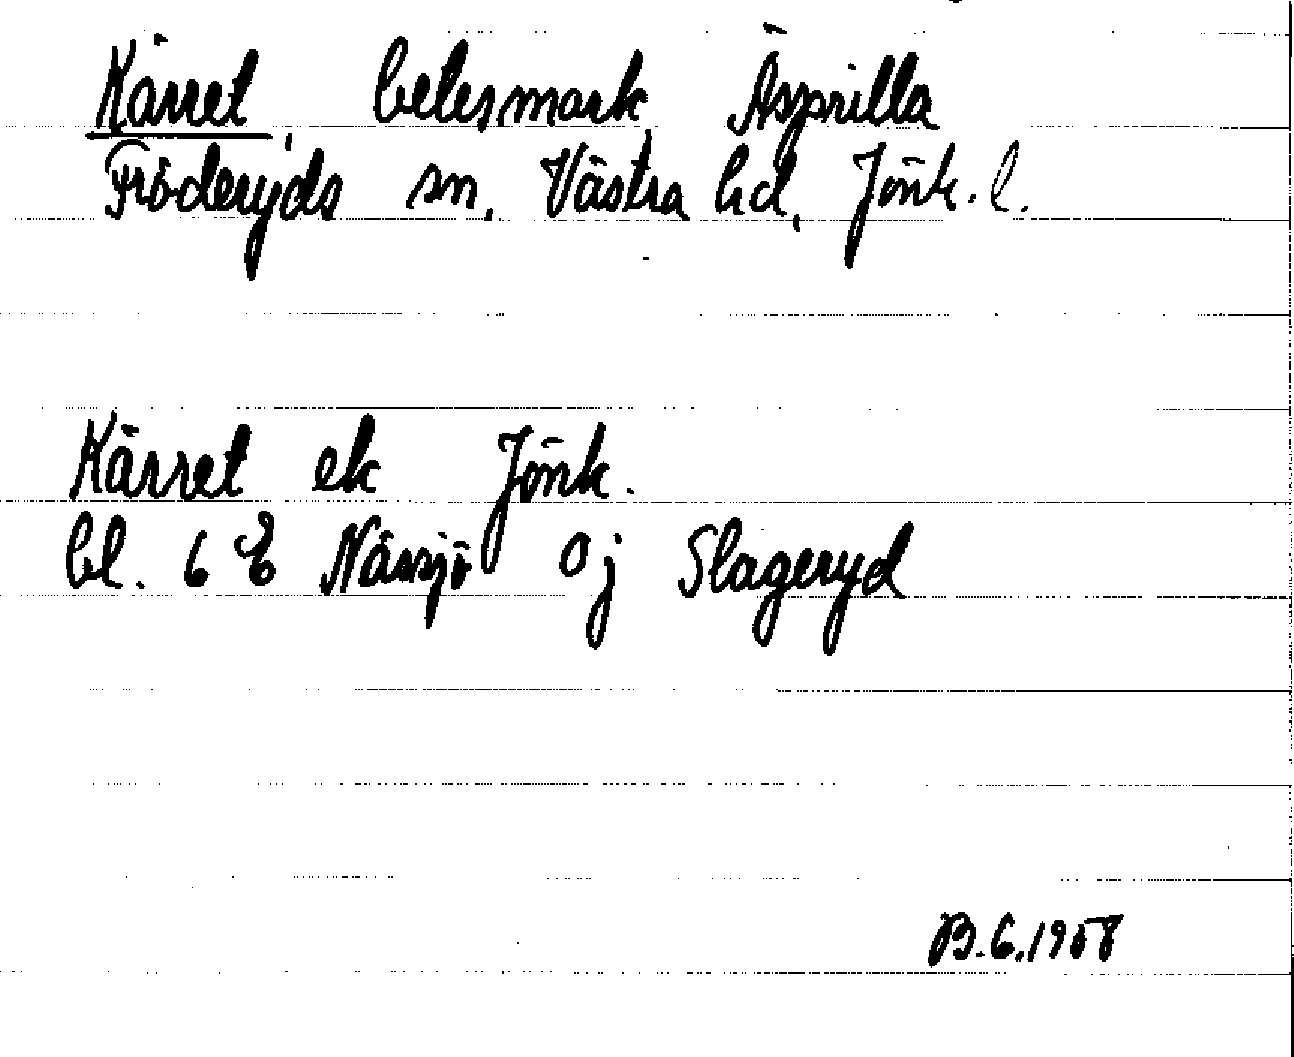 Kärret, betesmark, Äsprilla
Fröderyds sn, Västra hd, Jönk. l.
Kärret ek Jönk.
bl. 6 E Nässjö 0j Slageryd
B.G.1958